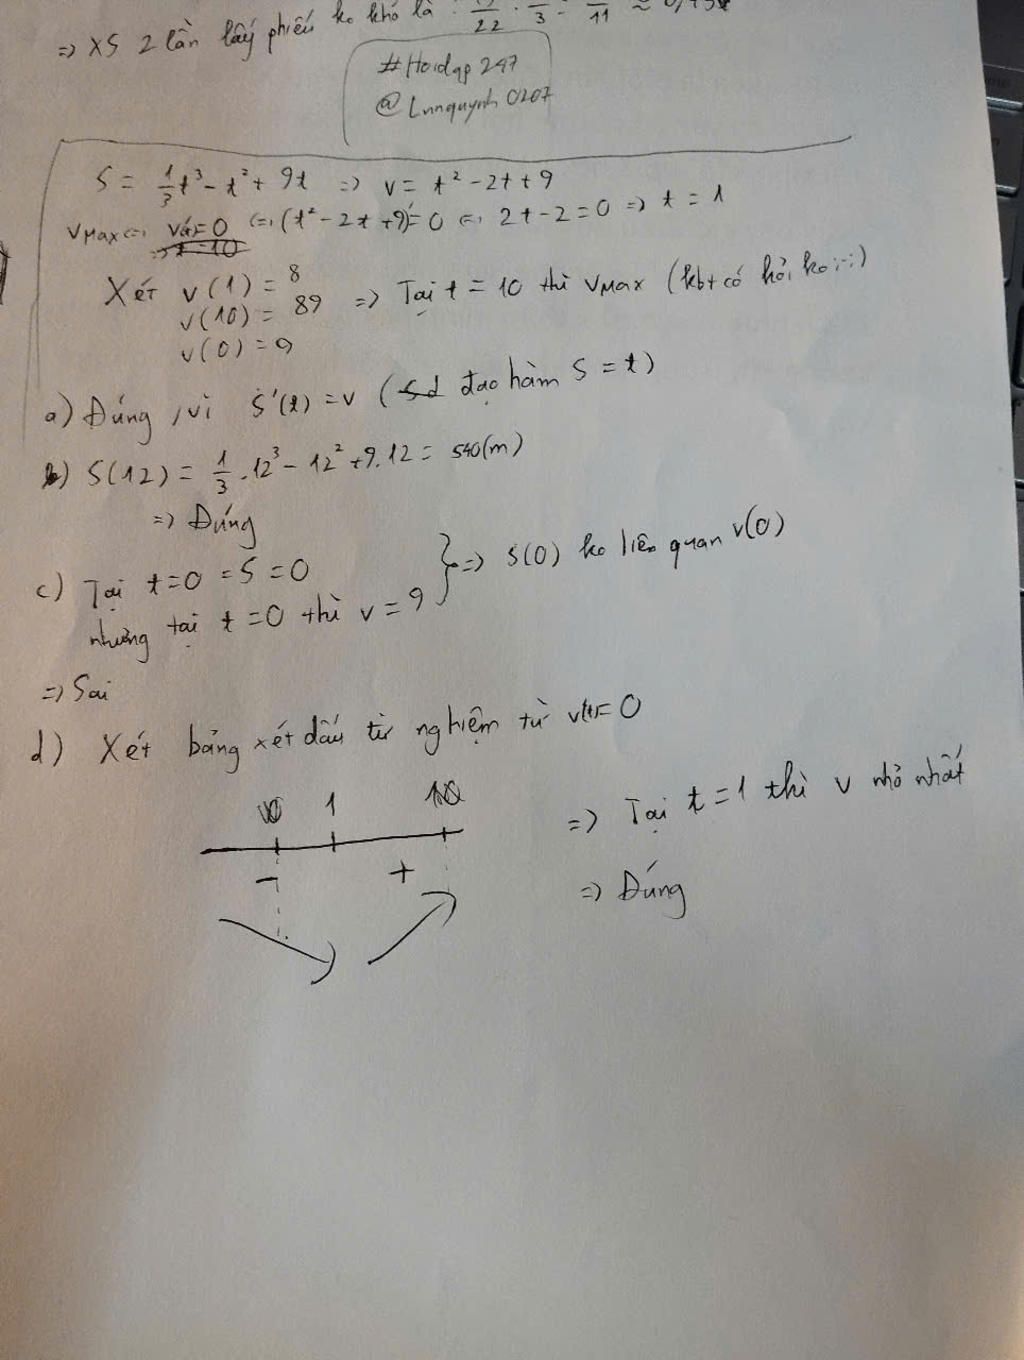 => XS 2 lần lấy phiếu ko khó là
22 . 3 = 11
#Hoidap 247
@Lnnquynh0207
S = 1/3 t³ - t² + 9t => v = t² - 2t + 9
vMax <=> v'(t) = 0 <=> (t² - 2t + 9)' = 0 <=> 2t - 2 = 0 => t = 1
Xét v(1) = 8
v(10) = 89 => Tại t = 10 thì vMax (kbt có hỏi ko :-:)
v(0) = 9
a) Đúng, vì S'(t) = v (đạo hàm S = t)
b) S(12) = 1/3 . 12³ - 12² + 9.12 = 540(m)
=> Đúng
c) Tại t=0 = S = 0
nhưng tại t = 0 thì v = 9 } => S(0) ko liên quan v(0)
=> Sai
d) Xét bảng xét dấu từ nghiệm từ v'(t) = 0
1
- +
=> Tại t = 1 thì v nhỏ nhất
=> Đúng